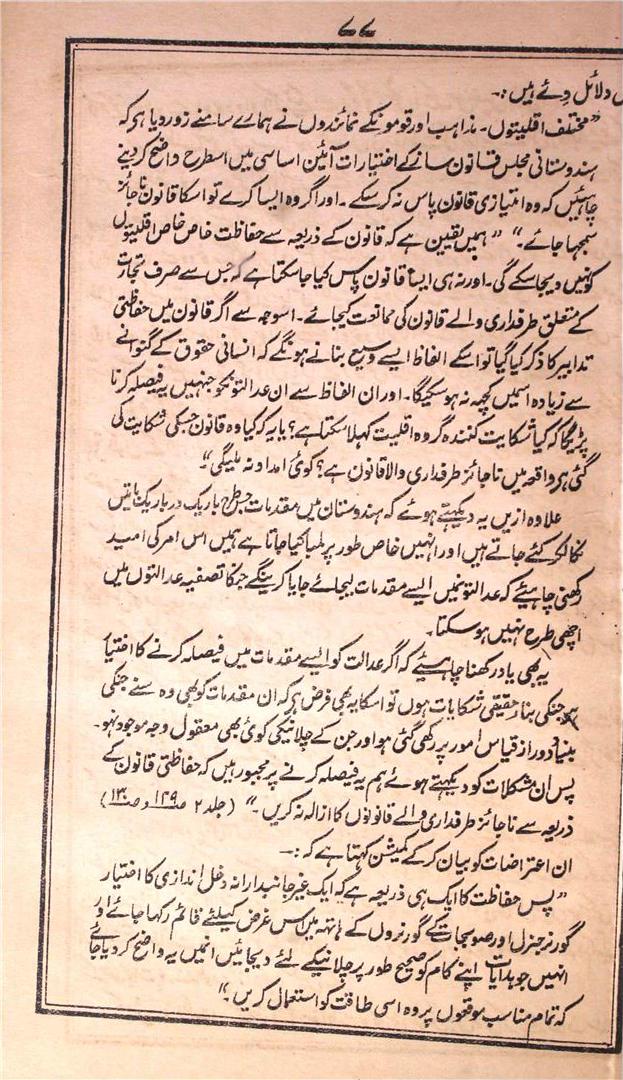 ۷۷
دلائل دِئے ہیں:۔
”مختلف اقلیتوں۔ مذاہب اور قومونکے نمائندوں نے ہمارے سامنے زور دیا ہر کہ
ہندوستانی مجلس قانون ساز کے اختیارات آئین اساسی میں اسطرح واضح کر دینے
چاہئیں کہ وہ امتیازی قانون پاس نہ کر سکے۔ اور اگر وہ ایسا کرے تو اسکا قانون ناجائز
سمجہا جائے۔“ ”ہمیں یقین ہے کہ قانون کے ذریعہ سے حفاظت خاص خاص اقلیتوں
کو نہیں دیجا سکے گی۔ اور نہ ہی ایسا قانون پاس کیا جا سکتا ہے کہ جس سے صرف تجارت
کے متعلق طرفداری والے قانون کی ممانعت کیجائے۔ اسوجہ سے اگر قانون میں حفاظتی
تدابیر کا ذکر کیا گیا تو اسکے الفاظ ایسے وسیع بنانے ہونگے کہ انسانی حقوق کے گنوانے
سے زیادہ اسمیں کچہہ نہ ہو سکیگا۔ اور ان الفاظ سے ان عدالتونکو جنہیں یہ فیصلہ کرنا
پڑیگا کہ کیا شکایت کنندہ گروہ اقلیت کہلا سکتا ہے؟ یا یہ کہ کیا وہ قانون جسکی شکایت کی
گئی ہر واقعہ میں ناجائز طرفداری والا قانون ہے؟ کوئی امداد نہ ملیگی“۔
علاوہ ازیں یہ دیکہتے ہوئے کہ ہندوستان میں مقدمات جسطرح باریک در باریک باتیں
نکالکر کئے جاتے ہیں اور انہیں خاص طور پر لمبا کیا جاتا ہے ہمیں اس امر کی امید
رکھنی چاہیئے کہ عدالتونمیں ایسے مقدمات لیجائے جایا کرینگے جنکا تصفیہ عدالتوں میں
اچھی طرح نہیں ہو سکتا۔
یہ بھی یاد رکھنا چاہئے کہ اگر عدالت کو ایسے مقدمات میں فیصلہ کرنے کا اختیار
ہر جنکی بناء حقیقی شکایات ہوں تو اسکا یہ بھی فرض ہر کہ ان مقدمات کو بھی وہ سنے جنکی
بنیاد دور از قیاس امور پر رکھی گئی ہو اور جن کے چلانیکی کوئی بھی معقول وجہ موجود نہو۔
پس ان مشکلات کو دیکہتے ہوئے ہم یہ فیصلہ کرنے پر مجبور ہیں کہ حفاظتی قانون کے
ذریعہ سے ناجائز طرفداری والے قانونوں کا ازالہ نہ کریں۔“ (جلد ۲ صـ۱۲۹ و صـ۱۳۰)
ان اعتراضات کو بیان کر کے کمیشن کہتا ہے کہ:۔
”پس حفاظت کا ایک ہی ذریعہ ہے کہ ایک غیر جانبدارانہ دخل اندازی کا اختیار
گورنر جنرل اور صوبجات کے گورنروں کے ہاتہہ میں اس غرض کیلئے قائم رکہا جائے اور
انہیں جو ہدایات اپنے کام کو صحیح طور پر چلانیکے لئے دیجائیں انمیں یہ واضح کر دیا جائے
کہ تمام مناسب موقعوں پر وہ اسی طاقت کو استعمال کریں۔“